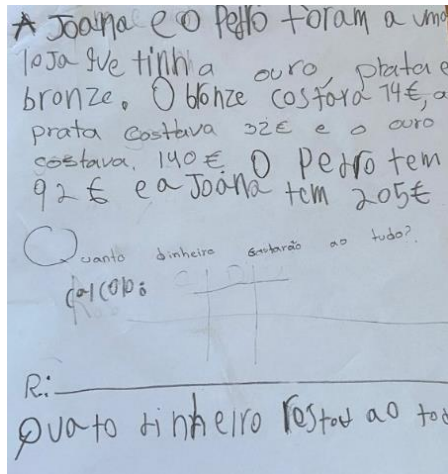 A Joana e o Pedro foram a uma
loja que tinha ouro, prata e
bronze. O bronze costava 14€, a
prata costtava 32€ e o ouro
costava. 140€ O Pedro tem
92€ e a Joana tem 205€
Quanto dinheiro gastarão ao tudo?
Calcolo:
C D U
R:
Quato dinheiro restou ao tod